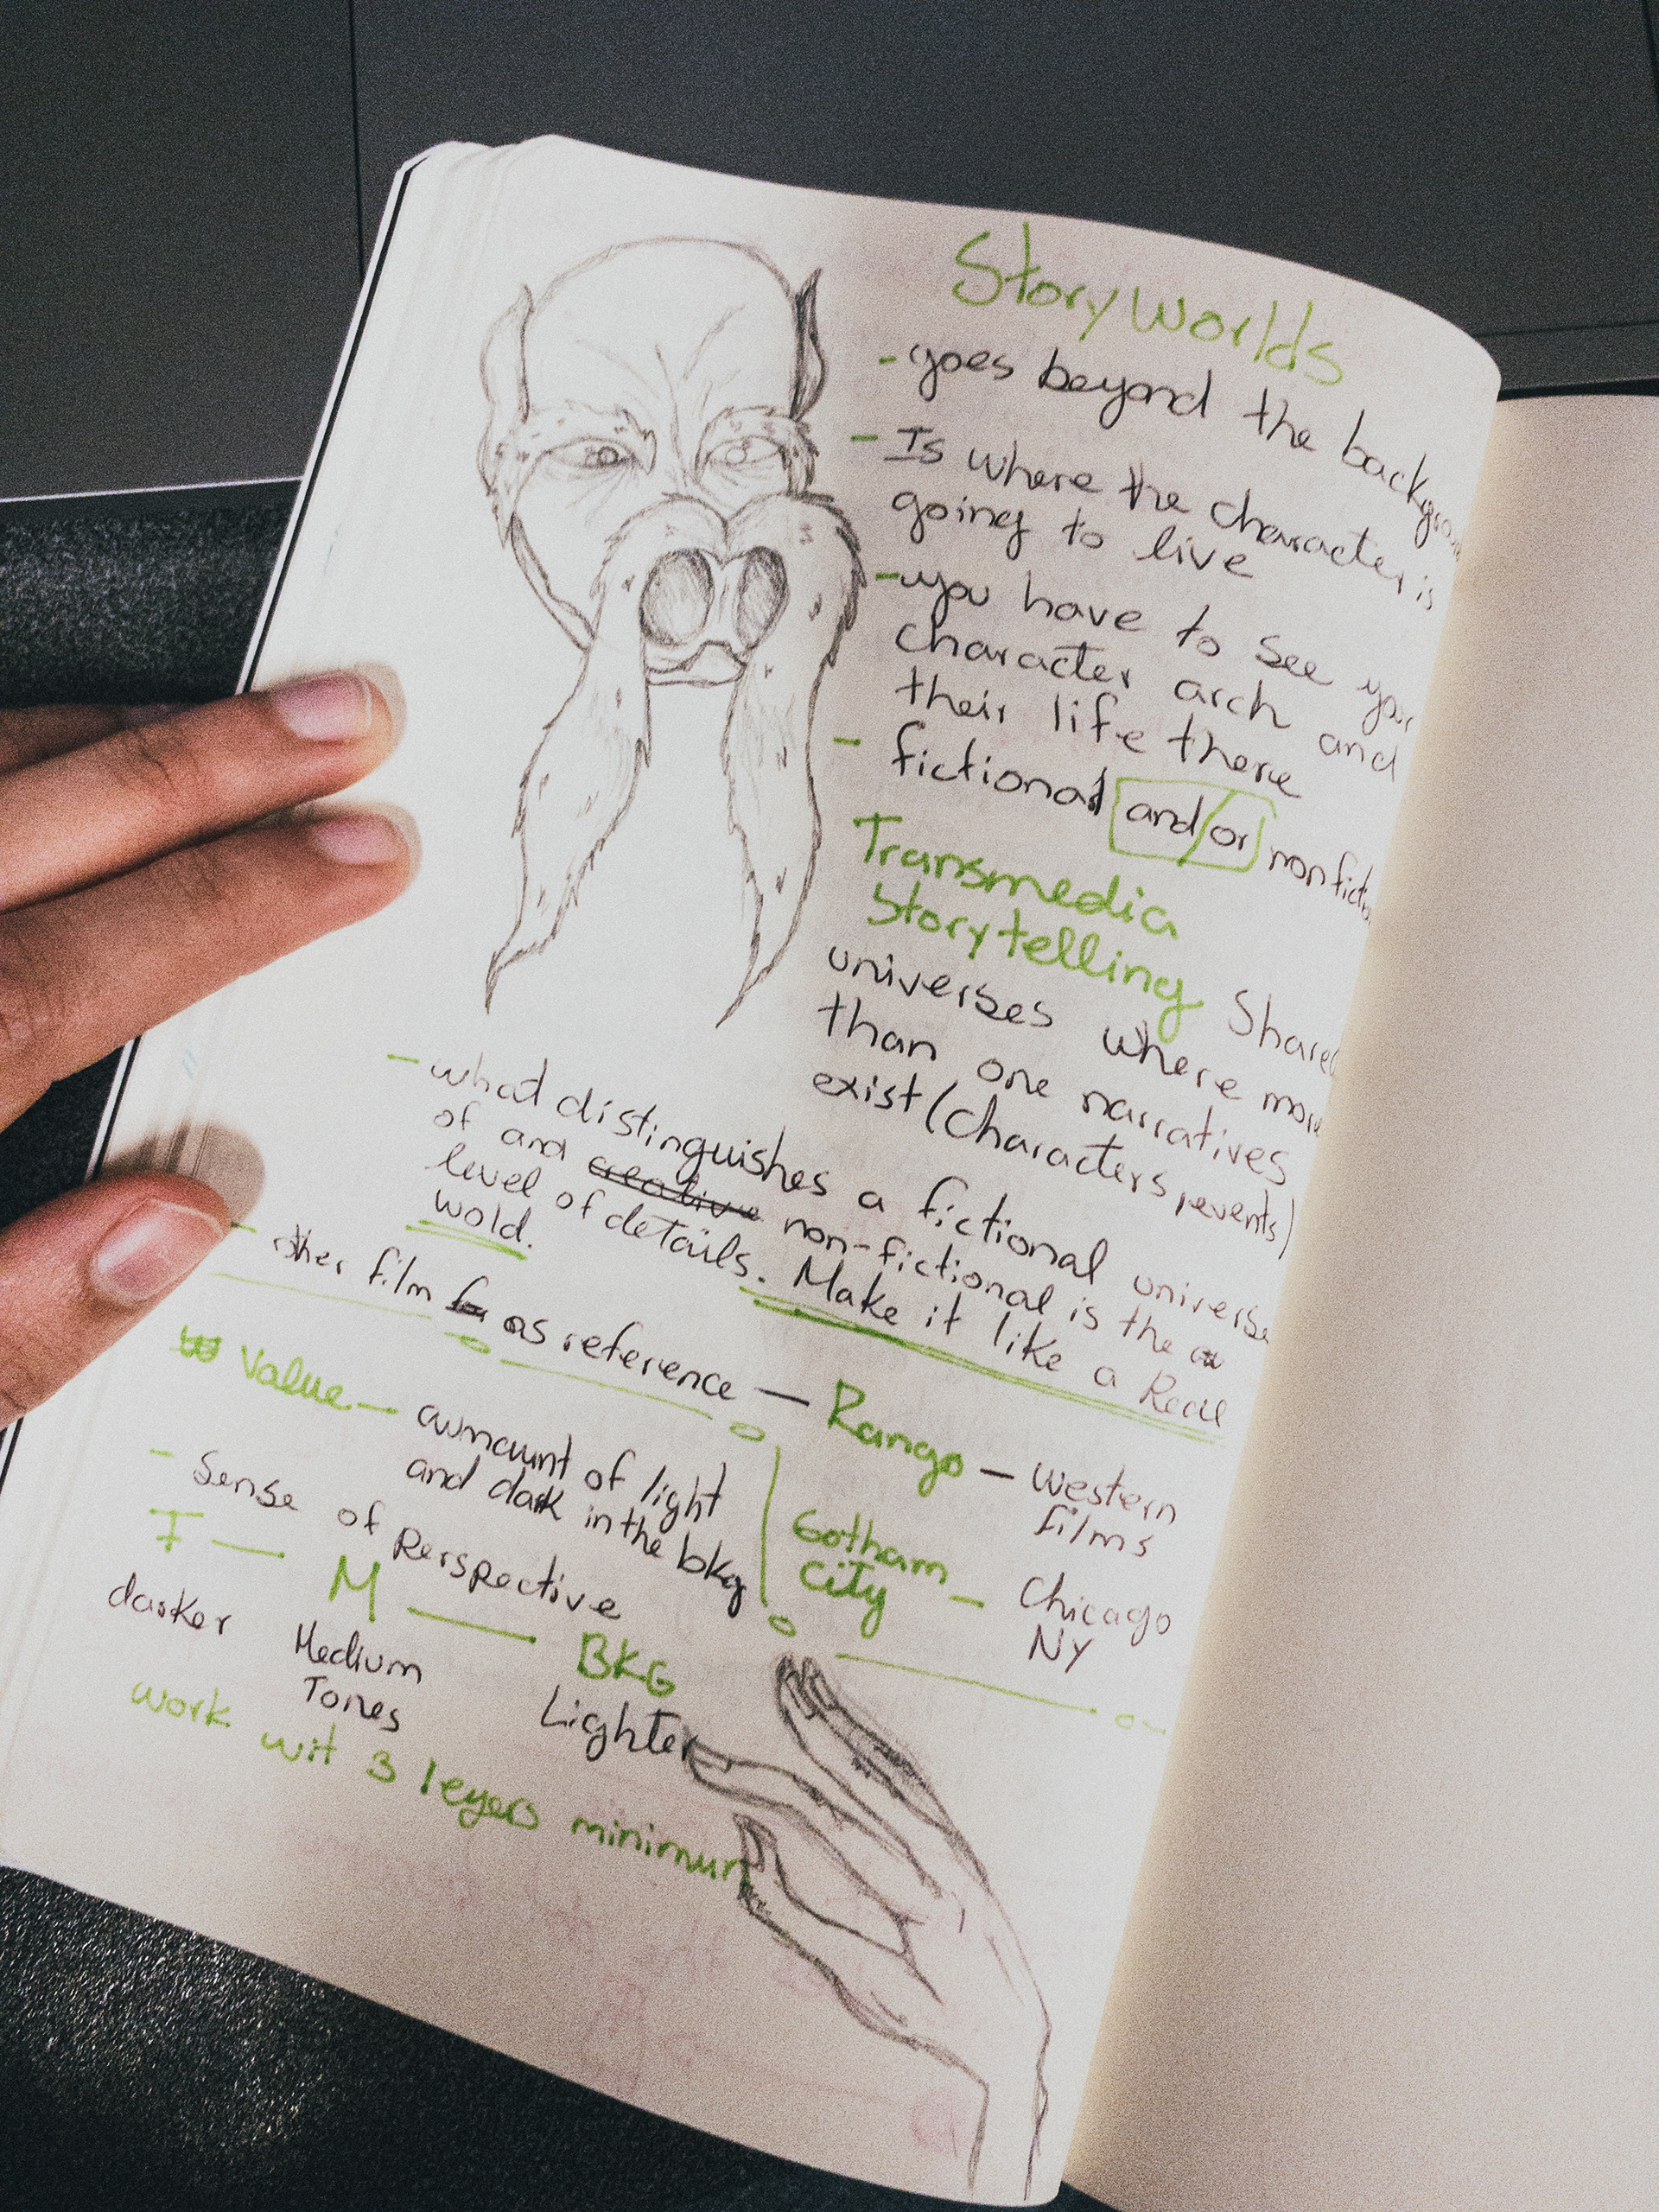 Story Worlds
- goes beyond the backgro
- Is where the character is
going to live
- you have to see your
character arch and
their life there
- fictional and/or nonfictio
Transmedia
Storytelling Shared
universes where more
than one narratives
exist (characters, events)
- what distinguishes a fictional universe
of and creative non-fictional is the
level of details. Make it like a Real
wold.
- other film as reference — Rango — Western
films
Value — aumount of light
and dark in the bkg
Gotham
City — Chicago
NY
- Sense of Perspective
F — M — BKG
darker Medium
Tones Lighter
work wit 3 leyers minimum